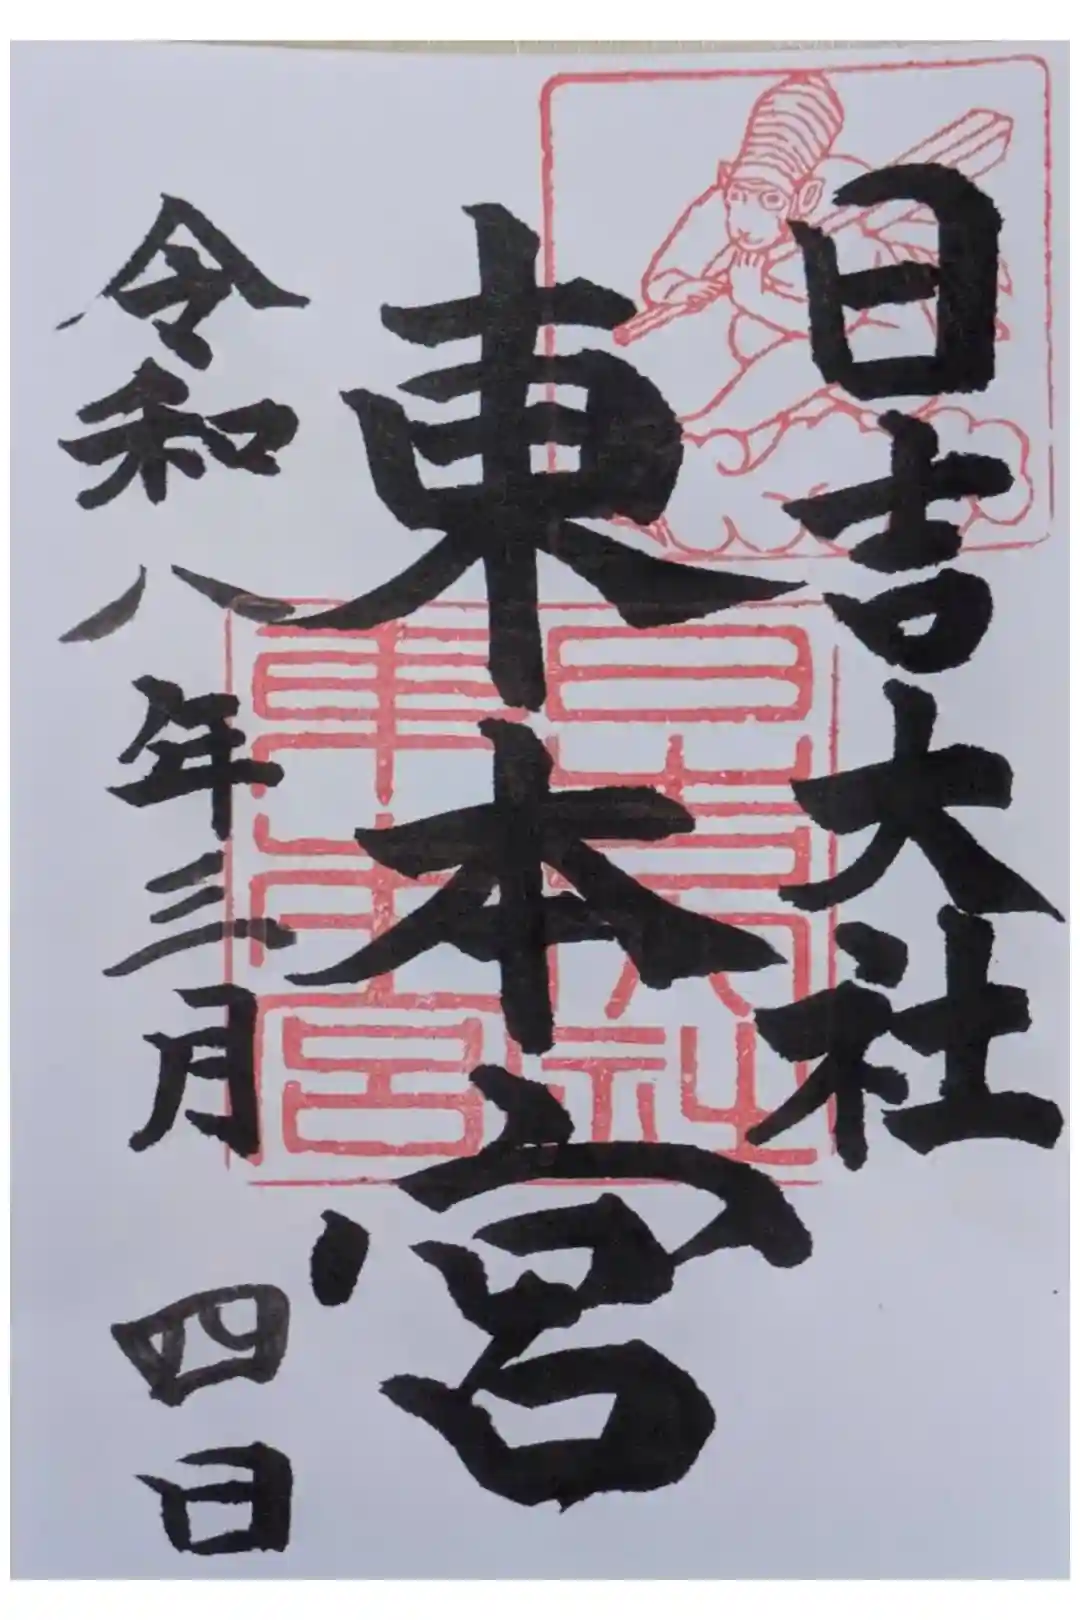 日吉大社
東本宮
令和八年三月四日
日吉大社
東本宮